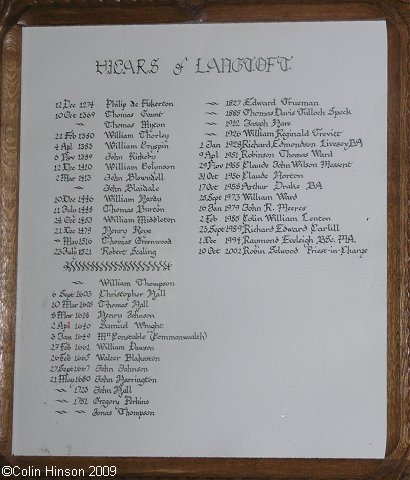 VICARS of LANGTOFT
12 Dec 1274 Philip de Fikerton
10 Oct 1369 Thomas Gaunt
~ Thomas Myton
21 Feb 1380 William Thorley
4 Apl 1383 William Cryspin
5 Nov 1389 John Rukeby
12 Dec 1410 William Bolenson
2 Mar 1413 John Blowndell
~ John Blaidale
10 Dec 1440 William Hardy
11 July 1448 Thomas Burton
24 Oct 1453 William Middleton
21 Dec 1479 Henry Reve
~ May 1516 Thomas Greenwood
23 July 1521 Robert Scaling
~ William Thompson
6 Sept 1603 Christopher Hall
10 Mar 1605 Thomas Hall
8 Mar 1618 Henry Johnson
2 Apl 1640 Samuel Wright
3 Jan 1649 Mr Constable (Commonwealth)
27 Feb 1661 William Dawson
26 Feb 1665 Walter Blakeston
27 Sept 1667 John Johnson
21 May 1680 John Harrington
~ ~ 1723 John Hall
~ ~ 1782 Gregory Perkins
~ ~ Jonas Thompson
~ 1827 Edward Trueman
~ 1885 Thomas Davis Tulloch Speck
~ 1912 Joseph Hare
~ 1926 William Reginald Trevitt
1 Jan 1928 Richard Edmondson Livesey BA
9 Apl 1931 Robinson Thomas Ward
29 Nov 1935 Claude John Wilson Messent
31 Oct 1956 Claude Norton
17 Oct 1958 Arthur Drake BA
28 Sept 1973 William Ward
16 Jan 1979 John R. Meeres
2 Feb 1985 Colin William Lenton
23 Sept 1989 Richard Edward Carlill
1 Dec 1994 Raymond Eveleigh BSc. MA.
10 Oct 2002 Robin Jelwood Priest-in-Charge
©Colin Hinson 2009